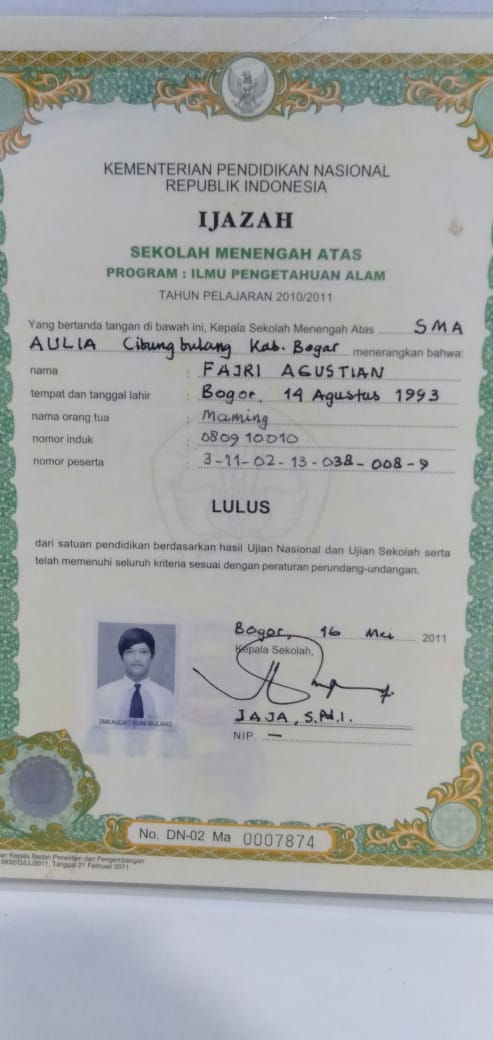 KEMENTERIAN PENDIDIKAN NASIONAL
REPUBLIK INDONESIA
IJAZAH
SEKOLAH MENENGAH ATAS
PROGRAM : ILMU PENGETAHUAN ALAM
TAHUN PELAJARAN 2010/2011
Yang bertanda tangan di bawah ini, Kepala Sekolah Menengah Atas SMA
AULIA Cibungbulang Kab. Bogor menerangkan bahwa:
nama : FAJRI AGUSTIAN
tempat dan tanggal lahir : Bogor, 14 Agustus 1993
nama orang tua : Maming
nomor induk : 080910010
nomor peserta : 3-11-02-13-038-008-9
LULUS
dari satuan pendidikan berdasarkan hasil Ujian Nasional dan Ujian Sekolah serta
telah memenuhi seluruh kriteria sesuai dengan peraturan perundang-undangan.
Bogor, 16 Mei 2011
Kepala Sekolah,
SMA AULIA CIBUNGBULANG
JAJA, S.Pd.I.
NIP. —
No. DN-02 Ma 0007874
Kepala Badan Penelitian dan Pengembangan
Tanggal 21 Februari 2011